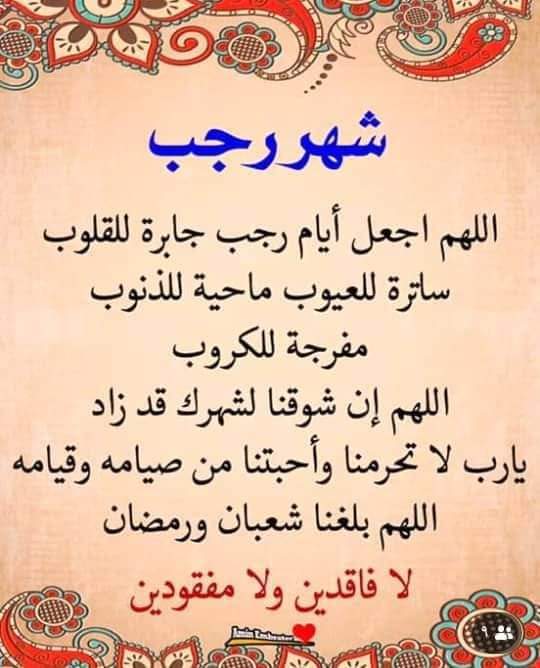 شهر رجب
اللهم اجعل أيام رجب جابرة للقلوب
ساترة للعيوب ماحية للذنوب
مفرجة للكروب
اللهم إن شوقنا لشهرك قد زاد
يارب لا تحرمنا وأحبتنا من صيامه وقيامه
اللهم بلغنا شعبان ورمضان
لا فاقدين ولا مفقودين
٩